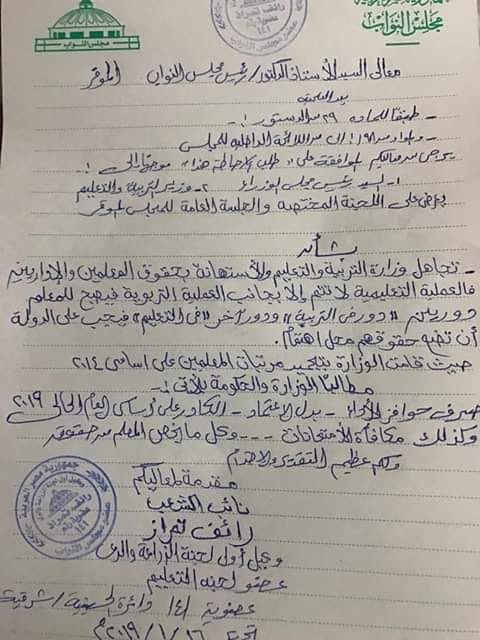 مجلس النواب
مجلس النواب
معالى السيد الأستاذ الدكتور / رئيس مجلس النواب الموقر
بعد التحية
- طبقا للمادة ١٢٩ من الدستور :
- والمواد من ١٩٨ إلى من اللائحة الداخلية للمجلس
يرجى من معاليكم الموافقة على " طلب الإحاطة هذا " موجها إلى :
١- السيد رئيس مجلس الوزراء ٢- وزير التربية والتعليم
يعرض على اللجنة المختصة والجلسة العامة للمجلس الموقر
بشأن
- تجاهل وزارة التربية والتعليم والأستهانة بحقوق المعلمين والإداريين
فالعملية التعليمية لا تتم إلا بجانب العملية التربوية فيصبح للمعلم
دورين " دور فى التربية " ودور آخر " فى التعليم " فيجب على الدولة
أن تضع حقوقهم محل اهتمام .
حيث قامت الوزارة بتجميد مرتبات المعلمين على اساسى ٢٠١٤
مطالبا الوزارة والحكومة بالآتى :
صرف حوافز الأداء - بدل الاعتماد - الكادر على أساسى العام الحالى ٢٠١٩
وكذلك مكافأة الامتحانات --- وكل ما يخص المعلم من حقوق
ولكم عظيم التقدير والاحترام
مقدمة لمعاليكم
نائب الشعب
رائف تمراز
وكيل أول لجنة الزراعة والرى
عضو لجنة التعليم
عضوية / ١٤١ دائرة الحسينية / شرقية
١٦ / ١ / ٢٠١٩م
جمهورية مصر العربية
رائف تمراز
عضو مجلس النواب